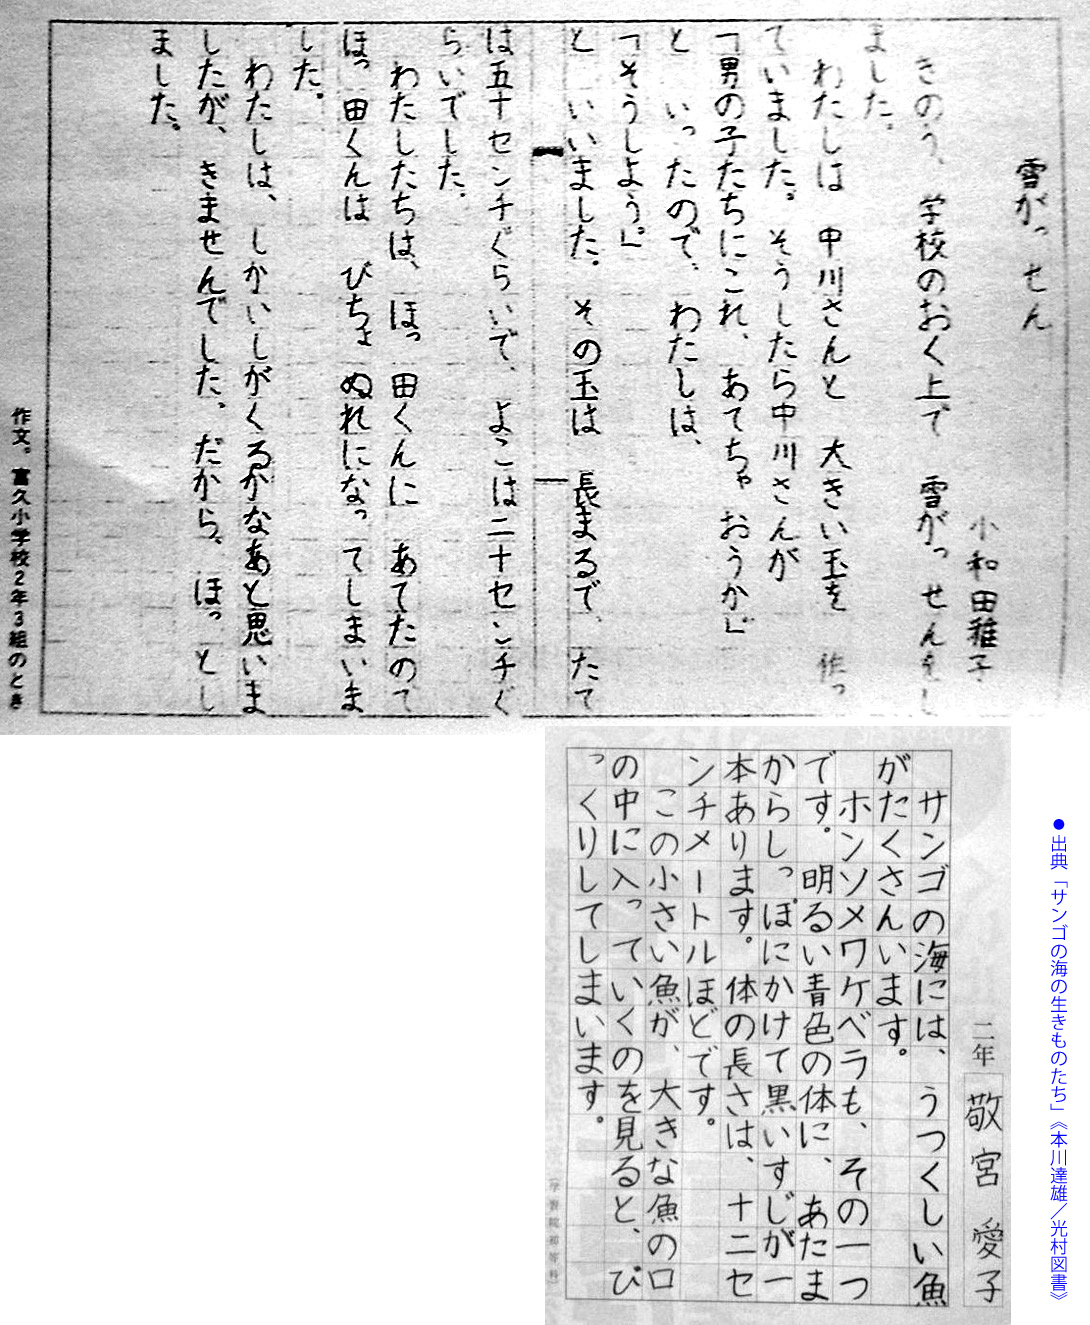 雪がっせん
小和田雅子
きのう、学校のおく上で 雪がっせんをし
ました。
わたしは 中川さんと 大きい玉を 作っ
ていました。そうしたら中川さんが
「男の子たちにこれ、あてちゃおうか。」
と いったので、わたしは、
「そうしよう。」
と いいました。その玉は 長まるで、たて
は五十センチぐらいで、よこは二十センチぐ
らいでした。
わたしたちは、ほっ田くんに あてたので
ほっ田くんは びちょぬれになってしまいま
した。
わたしは、しかいしがくるかなあと思いま
したが、きませんでした。だから、ほっとし
ました。
作文。富久小学校2年3組のとき
●出典「サンゴの海の生きものたち」《本川達雄／光村図書》
二年 敬宮 愛子
サンゴの海には、うつくしい魚
がたくさんいます。
ホンソメワケベラも、その一つ
です。明るい青色の体に、あたま
からしっぽにかけて黒いすじが一
本あります。体の長さは、十二セ
ンチメートルほどです。
この小さい魚が、大きな魚の口
の中に入っていくのを見ると、び
っくりしてしまいます。
（学習院初等科）